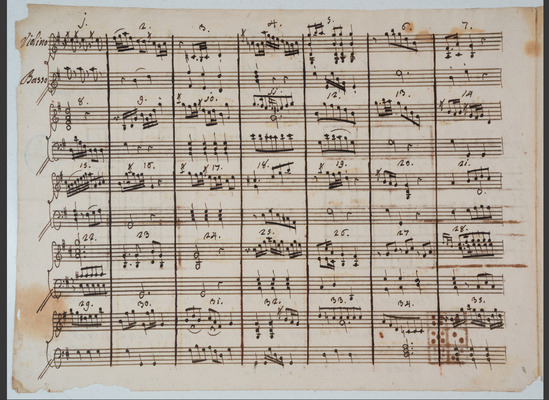 1. 2. 3. 4. 5. 6. 7.
Violino
Basso
8. 9. 10. 11. 12. 13. 14
15. 16. 17. 18. 19. 20. 21.
22. 23 24. 25. 26. 27. 28.
29. 30. 31. 32. 33. 34. 35.